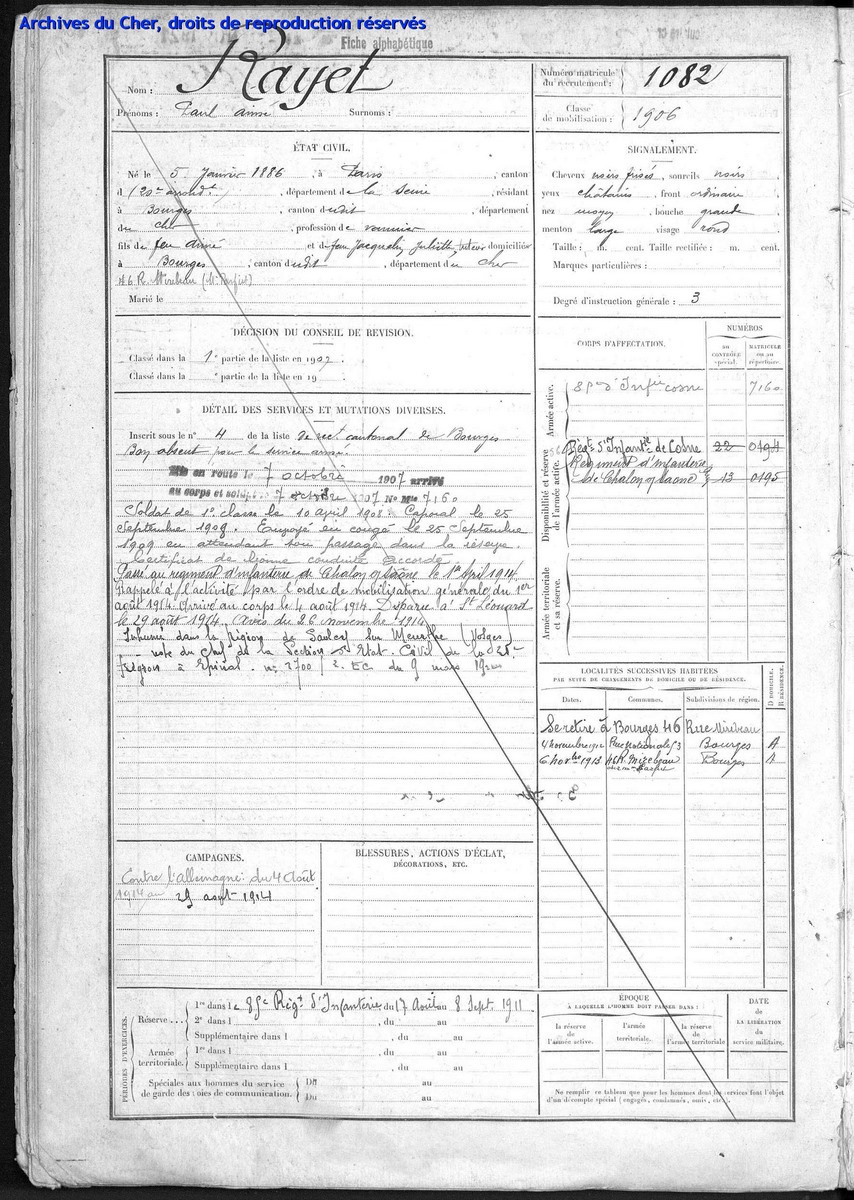 Archives du Cher, droits de reproduction réservés
Fiche alphabétique
Nom : Rayet
Prénoms : Paul Aimé Surnoms :
Numéro matricule du recrutement : 1082
Classe de mobilisation : 1906
ÉTAT CIVIL.
Né le 5 Janvier 1886, à Paris, canton
d (20e arrondt), département de la Seine, résidant
à Bourges, canton dudit, département
du Cher, profession de vannier
fils de feu Aimé et de feu Jacquelin, Juliette, domicilié
à Bourges, canton dudit, département du Cher
46 R. Mirebeau
Marié le
SIGNALEMENT.
Cheveux noirs frisés, sourcils noirs
yeux châtains, front ordinaire
nez moyen, bouche grande
menton large visage rond
Taille : m. cent. Taille rectifiée : m. cent.
Marques particulières :
Degré d'instruction générale : 3
DÉCISION DU CONSEIL DE REVISION.
Classé dans la 1e partie de la liste en 1907.
Classé dans la e partie de la liste en 19
DÉTAIL DES SERVICES ET MUTATIONS DIVERSES.
Inscrit sous le n° 4 de la liste de rect cantonal de Bourges
Bon absent pour le service armé.
Mis en route le 7 octobre 1907 arrivé
au corps et soldat 7 octobre 1907 No Mle 7160
Soldat de 1e classe le 10 avril 1908. Caporal le 25
Septembre 1908. Envoyé en congé le 25 Septembre
1909 en attendant son passage dans la réserve.
Certificat de bonne conduite accordé
Passé au régiment d'infanterie de Chalon s/ Saône le 1er April 1914.
Rappelé à l'activité par l'ordre de mobilisation générale du 1er
août 1914. Arrivé au corps le 4 août 1914. Disparu à St Léonard
le 29 août 1914. Avis du 26 novembre 1914
Inhumé dans la région de Saulcy sur Meurthe (Vosges)
- note du Chef de la Section d'Etat-Civil de la
Région à Epinal. n° 2700 / 2. EC du 9 mars
CORPS D'AFFECTATION.
NUMÉROS
AU CONTRÔLE SPÉCIAL.
MATRICULE OU AU RÉPERTOIRE.
Armée active.
85e d'Infie Cosne 7160
Disponibilité et réserve de l'armée active.
Régt d'Infantie de Cosne 22 0494
Régiment d'infanterie
de Chalon s/ Saône 13 0195
Armée territoriale et sa réserve.
LOCALITÉS SUCCESSIVES HABITÉES
PAR SUITE DE CHANGEMENTS DE DOMICILE OU DE RÉSIDENCE.
Dates. Communes. Subdivisions de région. D DOMICILE. R RÉSIDENCE.
Se retire à Bourges 46 Rue Mirebeau
4 novembre 1912 Rue Nationale 53 Bourges A
6 novbre 1913 46 R. Mirebeau Bourges A
CAMPAGNES.
Contre l'Allemagne du 4 Août
1914 au 29 août 1914
BLESSURES, ACTIONS D'ÉCLAT,
DÉCORATIONS, ETC.
PÉRIODES D'EXERCICES.
Réserve ...
1re dans le 85e Régt d'Infanterie du 17 Août au 8 Sept. 1911.
2e dans l , du au
Supplémentaire dans l , du au
Armée territoriale.
1re dans l , du au
Supplémentaire dans l , du au
Spéciales aux hommes du service
de garde des voies de communication.
Du au
Du au
ÉPOQUE
À LAQUELLE L'HOMME DOIT PASSER DANS :
la réserve de l'armée active.
l'armée territoriale.
la réserve de l'armée territoriale
DATE
de
LA LIBÉRATION
du
service militaire.
Ne remplir ce tableau que pour les hommes dont les services font l'objet
d'un décompte spécial (engagés, condamnés, omis, etc.)